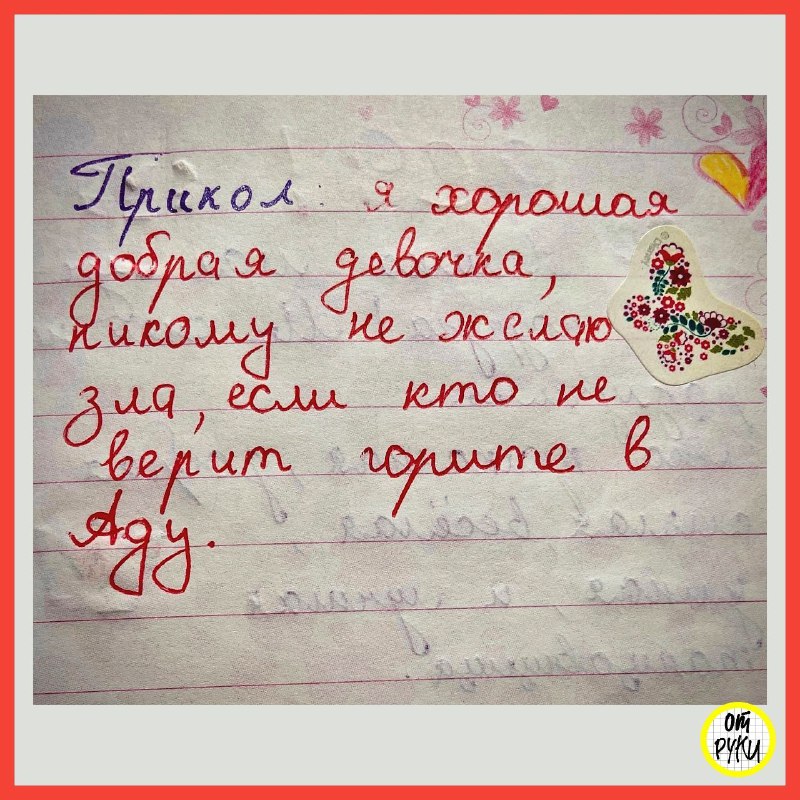 Прикол. я хорошая
добрая девочка,
никому не желаю
зла, если кто не
верит горите в
Аду.
от
руки